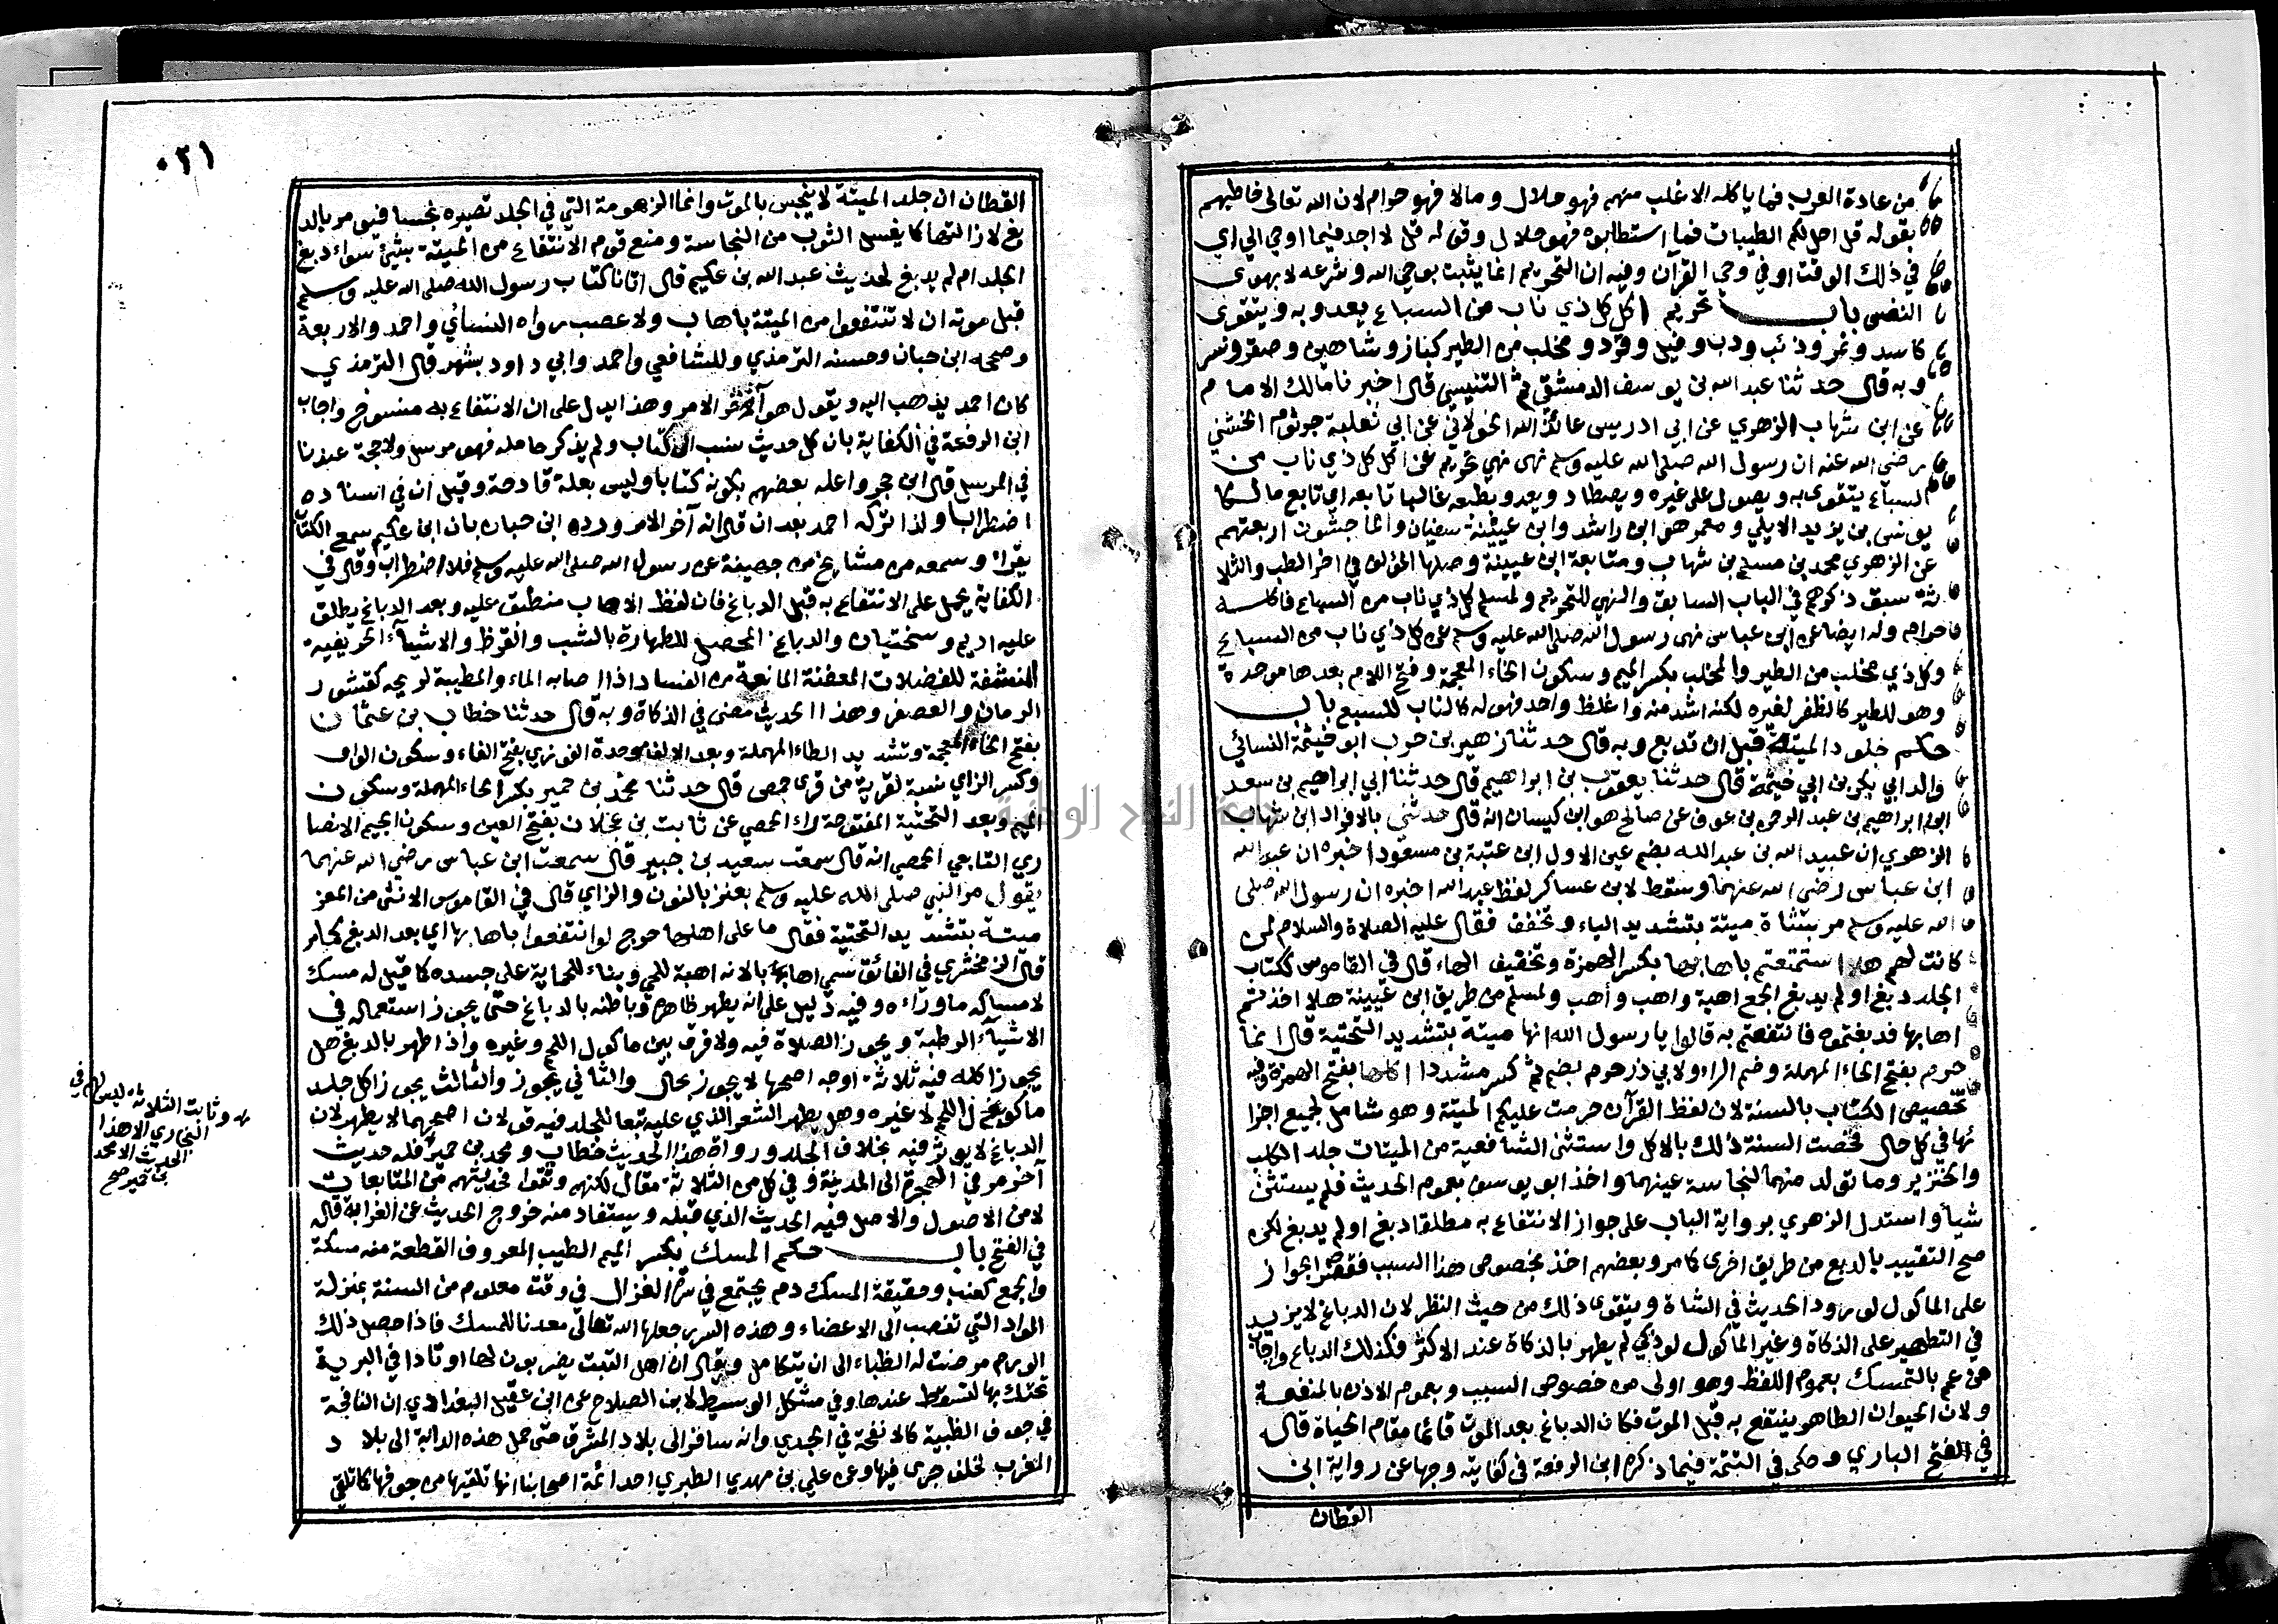 من عادة العرب فما ياكله الاغلب منهم فهو حلال ومالا فهو حرام لان الله تعالى خاطبهم
بقوله قل احل لكم الطيبات فما استطابوه فهو حلال وقوله قل لا اجد فيما اوحي الي اي
في ذلك الوقت او في وحي القرآن وفيه ان التحريم انما يثبت بوحي الله وشرعه لا بهوى
النفس باب تحريم اكل كل ذي ناب من السباع يعدو به ويتقوى
كاسد ونمر وذئب ودب وفيل وقرد و مخلب من الطير كباز وشاهين وصقر ونسر
وبه قال حدثنا عبد الله بن يوسف الدمشقي ثم التنيسي قال اخبرنا مالك الامام
عن ابن شهاب الزهري عن ابي ادريس عائذ الله الخولاني عن ابي ثعلبة جرثوم الخشني
رضي الله عنه ان رسول الله صلى الله عليه وسلم نهى نهي تحريم عن اكل كل ذي ناب من
السباع يتقوى به ويصول على غيره ويصطاد ويعدو بطبعه غالبا تابعه اي تابع مالكا
يونس بن يزيد الايلي ومعمر هو ابن راشد وابن عيينة سفيان والماجشون اربعتهم
عن الزهري محمد بن مسلم بن شهاب ومتابعة ابن عيينة وصلها المؤلف في اخر الطب والثلا
ثة سبق ذكرهم في الباب السابق والنهي للتحريم ولمسلم كل ذي ناب من السباع فاكله
حرام وله ايضا عن ابن عباس نهى رسول الله صلى الله عليه وسلم عن كل ذي ناب من السباع
وكل ذي مخلب من الطير والمخلب بكسر الميم وسكون الخاء المعجمة وفتح اللام بعدها موحدة
وهو للطير كالظفر لغيره لكنه اشد منه واغلظ واحد فهو له كالناب للسبع باب
حكم جلود الميتة قبل ان تدبغ وبه قال حدثنا زهير بن حرب ابو خيثمة النسائي
والد ابي بكر بن ابي خيثمة قال حدثنا يعقوب بن ابراهيم قال حدثنا ابي ابراهيم بن سعد
ابن ابراهيم بن عبد الرحمن بن عوف عن صالح هو ابن كيسان انه قال حدثني بالافراد ابن شهاب
الزهري ان عبيد الله بن عبد الله بضم عين الاول ابن عتبة بن مسعود اخبره ان عبد الله
ابن عباس رضي الله عنهما وسقط لابن عساكر لفظ عبد الله اخبره ان رسول الله صلى
الله عليه وسلم مر بشاة ميتة بتشديد الياء وتخفف فقال عليه الصلاة والسلام لمن
كانت لهم هلا استمتعتم باهابها بكسر الهمزة وتخفيف الهاء قال في القاموس ككتاب
الجلد دبغ او لم يدبغ الجمع اهبة واهب وأهب ولمسلم من طريق ابن عيينة هلا اخذتم
اهابها فدبغتموه فانتفعتم به قالوا يا رسول الله انها ميتة بتشديد التحتية قال انما
حرم بفتح الحاء المهملة وضم الراء ولابي ذر حرم بضم ثم كسر مشددا اكلها بفتح الهمزة وفيه
تخصيص الكتاب بالسنة لان لفظ القرآن حرمت عليكم الميتة وهو شامل لجميع اجزا
ئها في كل حال فخصت السنة ذلك بالاكل واستثنى الشافعية من الميتات جلد الكلب
والخنزير وما تولد منهما لنجاسة عينهما واخذ ابو يوسف بعموم الحديث فلم يستثن
شيأ واستدل الزهري برواية الباب على جواز الانتفاع به مطلقا دبغ او لم يدبغ لكن
صح التقييد بالدبغ من طريق اخرى كما مر وبعضهم اخذ بخصوص هذا السبب فقصر الجواز
على الماكول لورود الحديث في الشاة ويتقوى ذلك من حيث النظر لان الدباغ لا يزيد
في التطهير على الذكاة وغير الماكول لو ذكي لم يطهر بالذكاة عند الاكثر فكذلك الدباغ واجاب
من عمم بالتمسك بعموم اللفظ وهو اولى من خصوص السبب وبعموم الاذن بالمنفعة
ولان الحيوان الطاهر ينتفع به قبل الموت فكان الدباغ بعد الموت قائما مقام الحياة قاله
في الفتح الباري وحكى في التتمة فيما ذكره ابن الرفعة في كفايته وجها عن رواية ابن
القطان
٠٢١
القطان ان جلد الميتة لا ينجس بالموت وانما الزهومة التي في الجلد تصيره نجسا فيومر بالد
بغ لازالتها كما يغسل الثوب من النجاسة ومنع قوم الانتفاع من الميتة بشيئ سواء دبغ
الجلد ام لم يدبغ لحديث عبد الله بن عكيم قال اتانا كتاب رسول الله صلى الله عليه وسلم
قبل موته ان لا تنتفعوا من الميتة باهاب ولا عصب رواه النسائي واحمد والاربعة
وصححه ابن حبان وحسنه الترمذي وللشافعي واحمد وابي داود بشهر قال الترمذي
كان احمد يذهب اليه ويقول هو آخر الامر وهذا يدل على ان الانتفاع به منسوخ واجاب
ابن الرفعة في الكفاية بان كل حديث نسب الى كتاب ولم يذكر حامله فهو مرسل ولا حجة عندنا
في المرسل قال ابن حجر واعله بعضهم بكونه كتابا وليس بعلة قادحة وقيل ان في اسناده
اضطرابا ولذا تركه احمد بعد ان قال انه آخر الامر ورده ابن حبان بان ابن عكيم سمع الكتاب
يقراء وسمعه من مشايخ من جهينة عن رسول الله صلى الله عليه وسلم فلا اضطراب وقال في
الكفاية يحمل على الانتفاع به قبل الدباغ فان لفظ الاهاب منطبق عليه وبعد الدباغ يطلق
عليه اديم وسختيان والدباغ المحصل للطهارة بالشب والقرظ والاشيآء الحريفية
المنشفة للفضلات المعفنة المانعة من الفساد اذا اصابه الماء والمطيبة لريحه كقشور
الرمان والعصفر وهذا الحديث مضى في الذكاة وبه قال حدثنا خطاب بن عثمان
بفتح الخاء المعجمة وتشديد الطاء المهملة وبعد الالف موحدة الفوزي بفتح الفاء وسكون الواو
وكسر الزاي نسبة لقرية من قرى حمص قال حدثنا محمد بن حمير بكسر الحاء المهملة وسكون
الميم وبعد التحتية المفتوحة راء الحمصي عن ثابت بن عجلان بفتح العين وسكون الجيم الانصا
ري التابعي الحمصي انه قال سمعت سعيد بن جبير قال سمعت ابن عباس رضي الله عنهما
يقول مر النبي صلى الله عليه وسلم بعنز بالنون والزاي قال في القاموس الانثى من المعز
ميتة بتشديد التحتية فقال ما على اهلها حرج لو انتفعوا باهابها اي بعد الدبغ كما مر
قال الزمخشري في الفائق سمي اهابا لانه اهبة للحي وبناء للحماية على جسده كما قيل له مسك
لامساكه ما وراءه وفيه دليل على انه يطهر ظاهره وباطنه بالدباغ حتى يجوز استعماله في
الاشيآء الرطبة ويجوز الصلاة فيه ولا فرق بين ماكول اللحم وغيره واذا طهر بالدبغ هل
يجوز اكله فيه ثلاثة اوجه اصحها لا يجوز بحال والثاني يجوز والثالث يجوز اكل جلد
ماكول اللحم لا غيره وهل يطهر الشعر الذي عليه تبعا للجلد فيه قولان اصحهما لا يطهر لان
الدباغ لا يوثر فيه بخلاف الجلد ورواة هذا الحديث خطاب ومحمد بن حمير فله حديث
آخر مر في الهجرة الى المدينة وفي كل من الثلاثة مقال لكنهم وثقوا فحديثهم من المتابعات
لا من الاصول والاصل فيه الحديث الذي قبله ويستفاد منه خروج الحديث عن الغرابة قاله
في الفتح باب حكم المسك بكسر الميم الطيب المعروف القطعة منه مسكة
والجمع كعنب وحقيقة المسك دم يجتمع في سرة الغزال في وقت معلوم من السنة بمنزلة
المواد التي تنصب الى الاعضاء وهذه السرر جعلها الله تعالى معدنا للمسك فاذا حصل ذلك
الورم مرضت له الظباء الى ان يتكامل ويقال ان اهل التبت يضربون لها اوتادا في البرية
تحتك بها لتسقط عندها وفي مشكل الوسيط لابن الصلاح عن ابن عقيل البغدادي ان النافجة
في جوف الظبية كالانفحة في الجدي وانه سافر الى بلاد المشرق حتى حمل هذه الدابة الى بلاد
المغرب لخلف جرى فيها وعن علي بن مهدي الطبري احد ائمة اصحابنا انها تلقيها من جوفها كما تلقي
وثابت الثلاثة ليس لهم في
البخاري الا هذا
الحديث الا محمد
بن حمير صح